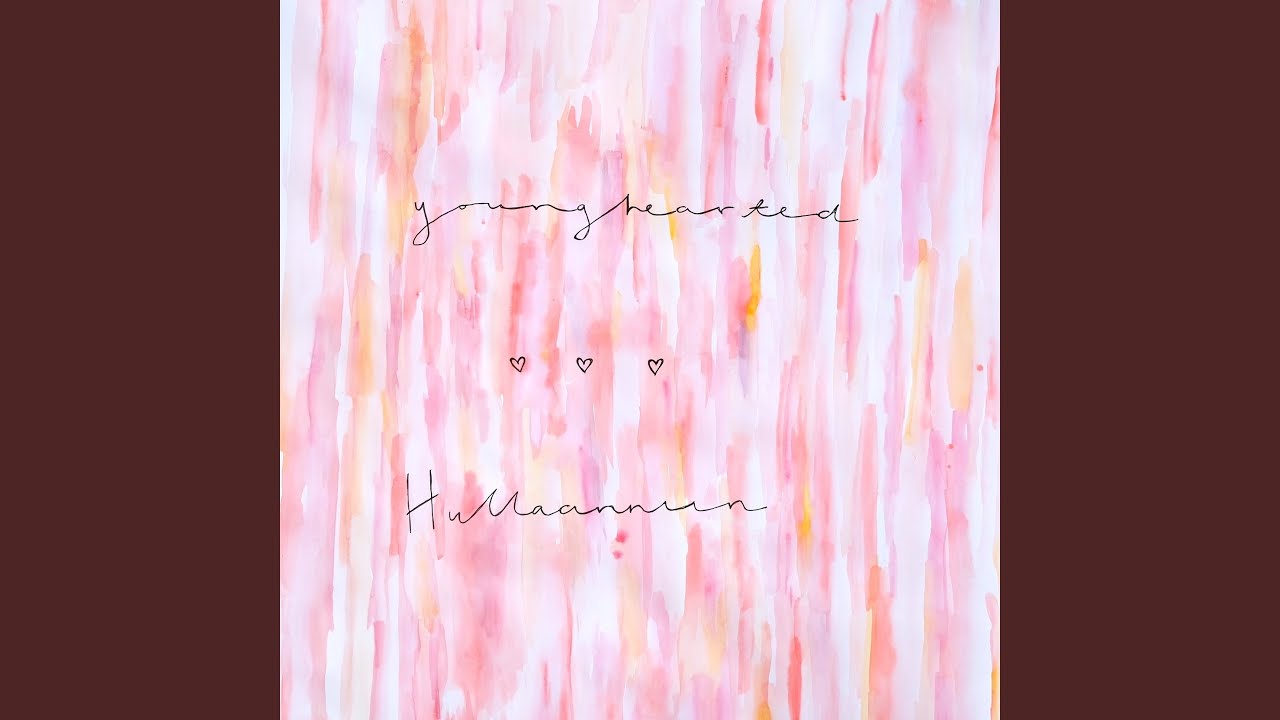 younghearted
♡ ♡ ♡
Hullaannun